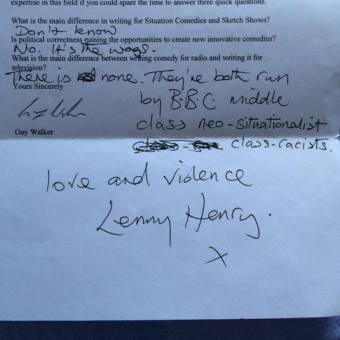 expertise in this field if you could spare the time to answer three quick questions.
What is the main difference in writing for Situation Comedies and Sketch Shows?
Don't know
Is political correctness ruining the opportunities to create new innovative comedies?
No. It's the wogs.
What is the main difference between writing comedy for radio and writing it for
television?
There is none. They're both run
Yours Sincerely
by B.B.C middle
class neo-situationalist
Guy Walker
class-racists.
love and violence
Lenny Henry.
x